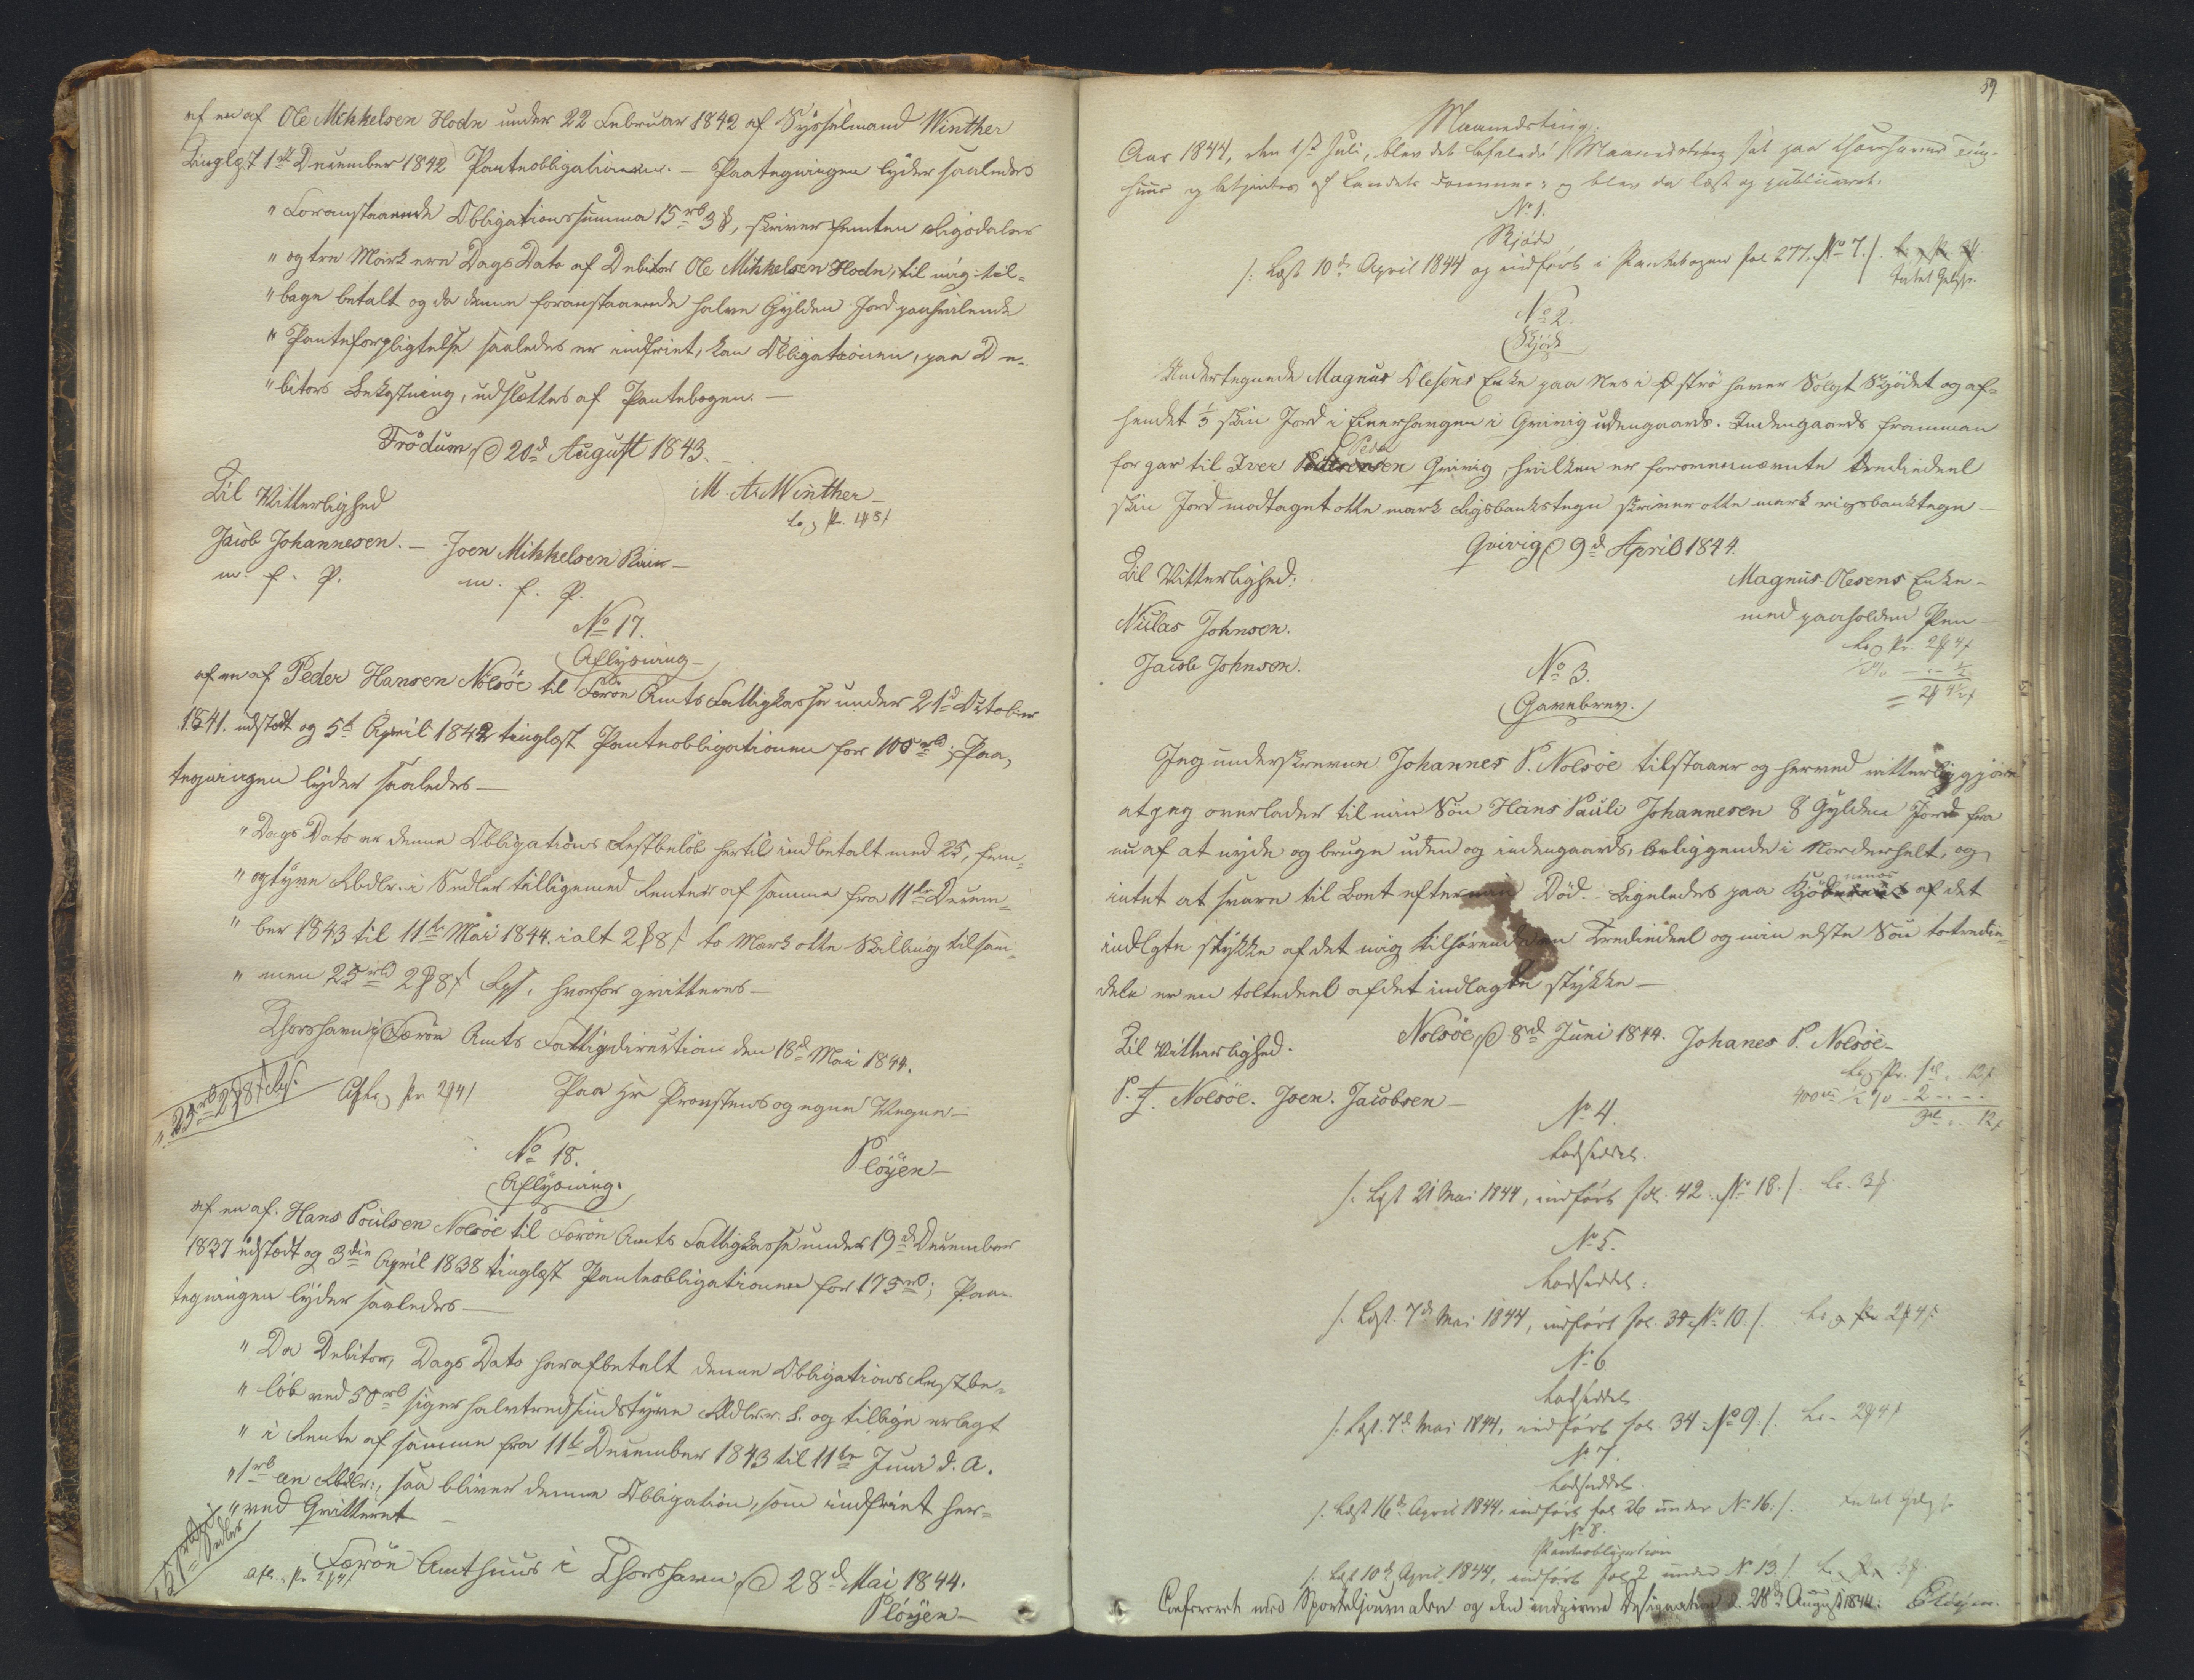 af en af Ole Mikkelsen Hodn under 22 Februar 1842 af Sysselmand Winther
Tinglæst 1ste December 1842 Panteobligationen. – Paategningen lyder saaledes
" Foranstaaende Obligationssumma 15 rb 3 ß, skriver femten Rigsdaler
" og tre Mark ere Dags Dato af Debitor Ole Mikkelsen Hodn, til mig til-
" bage betalt og da denne foranstaaende halve Gylden Jord paahvilende
" Panteforpligtelse saaledes er indfriet, kan Obligationen, paa De-
" bitors Bekostning, udslættes af Pantebogen. –
Trödum, d 20d August 1843. –
Til Vitterlighed
M. A. Winther –
Jacob Johannesen. – Joen Mikkelsen
m. f. P. m. f. P.
No 17.
Aflysning –
af en af Peder Hansen Nolsöe til Færøe Amts Fattigkasse under 21d October
1841. udstædt og 5t April 1842 tinglæst Panteobligationen for 100 rbd; Paa-
tegningen lyder saaledes –
" Dags Dato er denne Obligations Restbelöb hertil indbetalt med 25, fem-
" ogtyve Rbdlr. i Sedler tilligemed Renter af samme fra 11te Decem-
" ber 1843 til 11te Mai 1844. ialt 2 ß 8 s to Mark otte Skilling tilsam-
" men 25 rbd 2 ß 8 s, hvorfor qvitteres –
Thorshavn i Færøe Amts Fattigdirection den 18d Mai 1844.
Paa Hr Provstens og egne Vegne –
Plöyen –
No 18.
Aflysning.
af en af. Hans Poulsen Nolsöe til Færøe Amts Fattigkasse under 19d December
1837 udstædt og 3die April 1838 tinglæst Panteobligationen for 175 rb; Paa-
tegningen lyder saaledes –
" Da Debitor, Dags Dato har afbetalt denne Obligations Restbe-
" löb ved 50 rb siger halvtredsindstyve Rbdlr. S. og tillige erlagt
" i Rente af samme fra 11te December 1843 til 11te Juni d. A.
" 1 rb en Rbdlr:, saa bliver denne Obligation, som indfriet her-
" ved Qvitteret –
Færøe Amthuus i Thorshavn, d 28d Mai 1844.
Plöyen –
59.
Maanedsting:
Aar 1844, den 1ste Juli, blev det befalede Maanedsting sat paa Thorshavns Ting-
huus og betjentes af Landets Dommer: og blev da læst og publiceret.
No 1.
Skjöde
/: Læst 10de April 1844 og indfört i Pantebogen fol 277. No 7. /.
Intet Gebyr.
No 2.
Skjöde
Undertegnede Magnus Olesens Enke paa Nes i Öströ haver Solgt Skjödet og af-
hendet 1/3 skin Jord i Einerhangen i Qvivig udengaards. Indengaards
til Iver Peder Qvivig, hvilken er forommeldte trediedeel
skin Jord modtaget otte mark Rigsbankstegn skriver otte mark rigsbanktegn –
Qvivig, d 9d April 1844.
Til Vitterlighed:
Magnus Olesens Enke –
med paaholden Pen –
Niclas Johnsen.
Jacob Johnsen.
No 3.
Gavebrev.
Jeg underskrevne Johannes P. Nolsöe tilstaaer og herved vitterliggjör
at jeg overlader til min Sön Hans Pauli Johannesen 8 Gylden Jord fra
nu af at nyde og bruge uden og indengaards, beliggende i Norderhelt, og
intet at svare til Boet efter min Död. – Ligeledes paa af det
indlagte stykke af det mig tilhörende en Trediedeel og min edste Sön totredie-
dele er en toltedeel af det indlagte stykke –
Til Vitterlighed.
Nolsöe, d 8d Juni 1844. Johanes P. Nolsöe –
P. J. Nolsöe. Joen. Jacobsen –
No 4.
Lodseddel.
/: Læst 21 Mai 1844, indfört fol. 42. No 18. /.
No 5.
Lodseddel:
/: Læst. 7de Mai 1844, indfört fol. 34. No 10. /.
No 6.
Lodseddel.
/: Læst. 7de Mai 1844, indfört fol. 34 No 9. /.
No 7.
Lodseddel.
/: Læst 16de April 1844. indfört fol 26 under No 16. /. Intet Gebyr
No 8.
Panteobligation
/: Læst 10de April 1844, indfört fol 2 under No 13. /.
Confereret med Sporteljournalen og den indgivne Designation d. 28de August 1844. Plöyen.